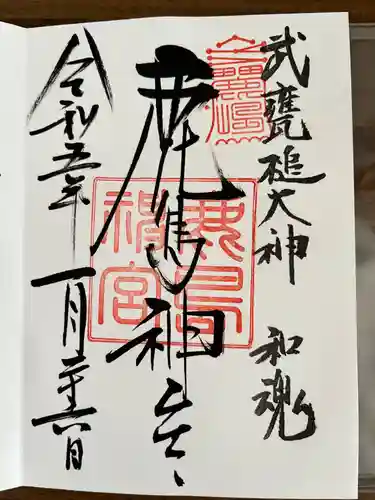 武甕槌大神 和魂
鹿島神宮
令和五年一月二十六日
鹿島
神宮